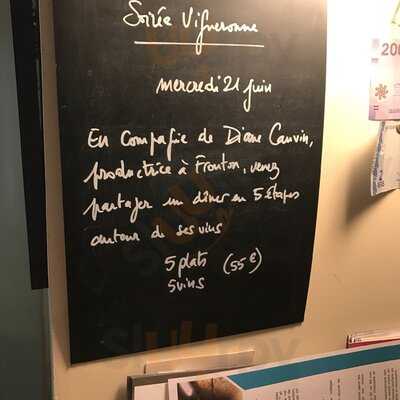 Soirée Vigneronne
mercredi 21 juin
En compagie de Diane Cauvin,
productrice à Fronton, venez
partager un dîner en 5 étapes
autour de ses vins
5 plats (55€)
5 vins
200